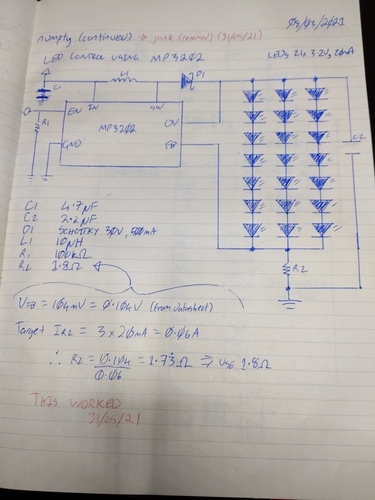 03/03/2021
numpty (continued) → junk (removed) (31/05/21)
LED CONTROL USING MP3202
LEDs 21x 3.2V, 20mA
L1
D1
C1
IN
SW
EN
R1
MP3202
OV
FB
GND
C2
R2
C1 4.7µF
C2 2.2µF
D1 SCHOTTKY 30V, 500mA
L1 10µH
R1 100kΩ
R2 1.8Ω
VFB = 104mV = 0.104V (from datasheet)
Target IR2 = 3 x 20mA = 0.06A
∴ R2 = 0.104 / 0.06 = 1.73Ω ⇒ USE 1.8Ω
THIS WORKED
31/05/21